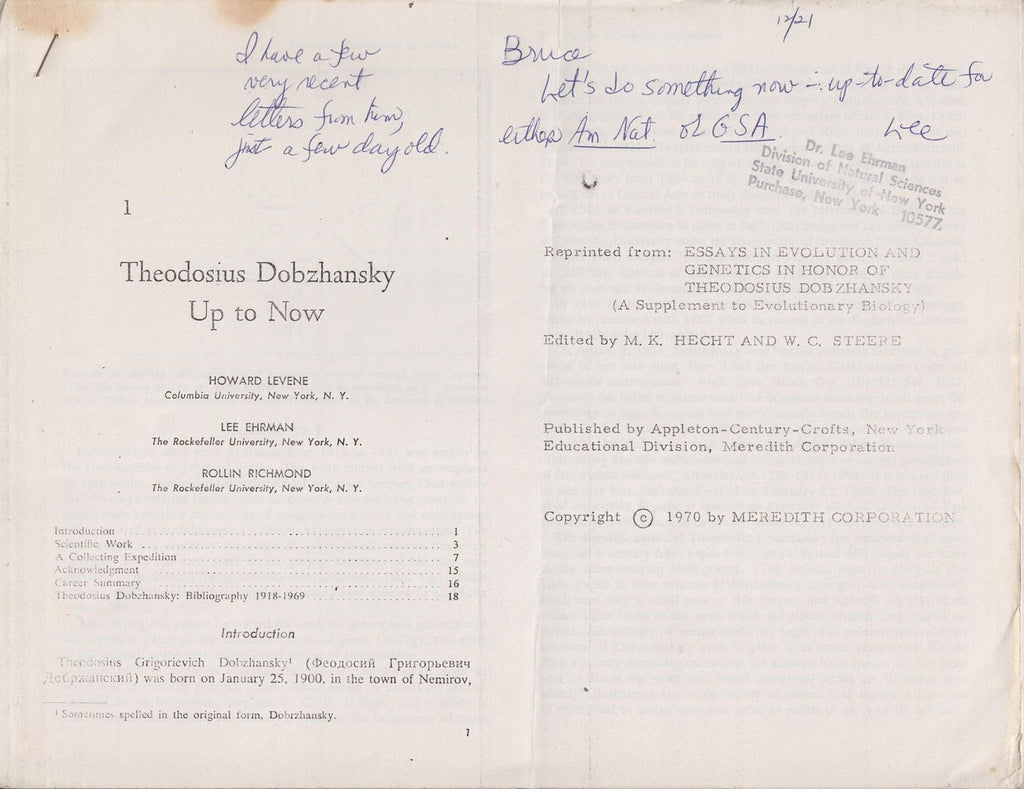 I have a few
very recent
letters from him,
just a few day old.
1
Theodosius Dobzhansky
Up to Now
HOWARD LEVENE
Columbia University, New York, N. Y.
LEE EHRMAN
The Rockefeller University, New York, N. Y.
ROLLIN RICHMOND
The Rockefeller University, New York, N. Y.
Introduction 1
Scientific Work 3
A Collecting Expedition 7
Acknowledgment 15
Career Summary 16
Theodosius Dobzhansky: Bibliography 1918-1969 18
Introduction
Theodosius Grigorievich Dobzhansky¹ (Феодосий Григорьевич
Добржанский) was born on January 25, 1900, in the town of Nemirov,
¹ Sometimes spelled in the original form, Dobrzhansky.
1
12/21
Bruce
Let's do something now - up-to-date for
either Am Nat. or GSA. Lee
Dr. Lee Ehrman
Division of Natural Sciences
State University of New York
Purchase, New York 10577
Reprinted from: ESSAYS IN EVOLUTION AND
GENETICS IN HONOR OF
THEODOSIUS DOBZHANSKY
(A Supplement to Evolutionary Biology)
Edited by M. K. HECHT AND W. C. STEERE
Published by Appleton-Century-Crofts, New York
Educational Division, Meredith Corporation
Copyright © 1970 by MEREDITH CORPORATION